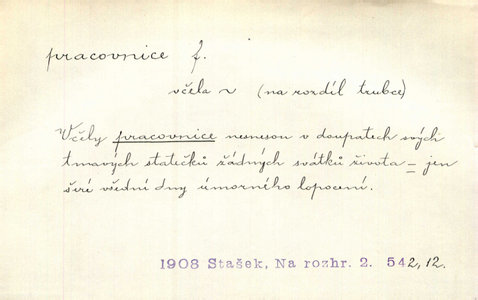 pracovnice f.
včela ~ (na rozdíl trubce)
Včely pracovnice nesnesou v doupatech svých
tmavých statečků žádných svátků života = jen
širé všední dny úmorného lopocení.
1908 Stašek, Na rozhr. 2. 542, 12.